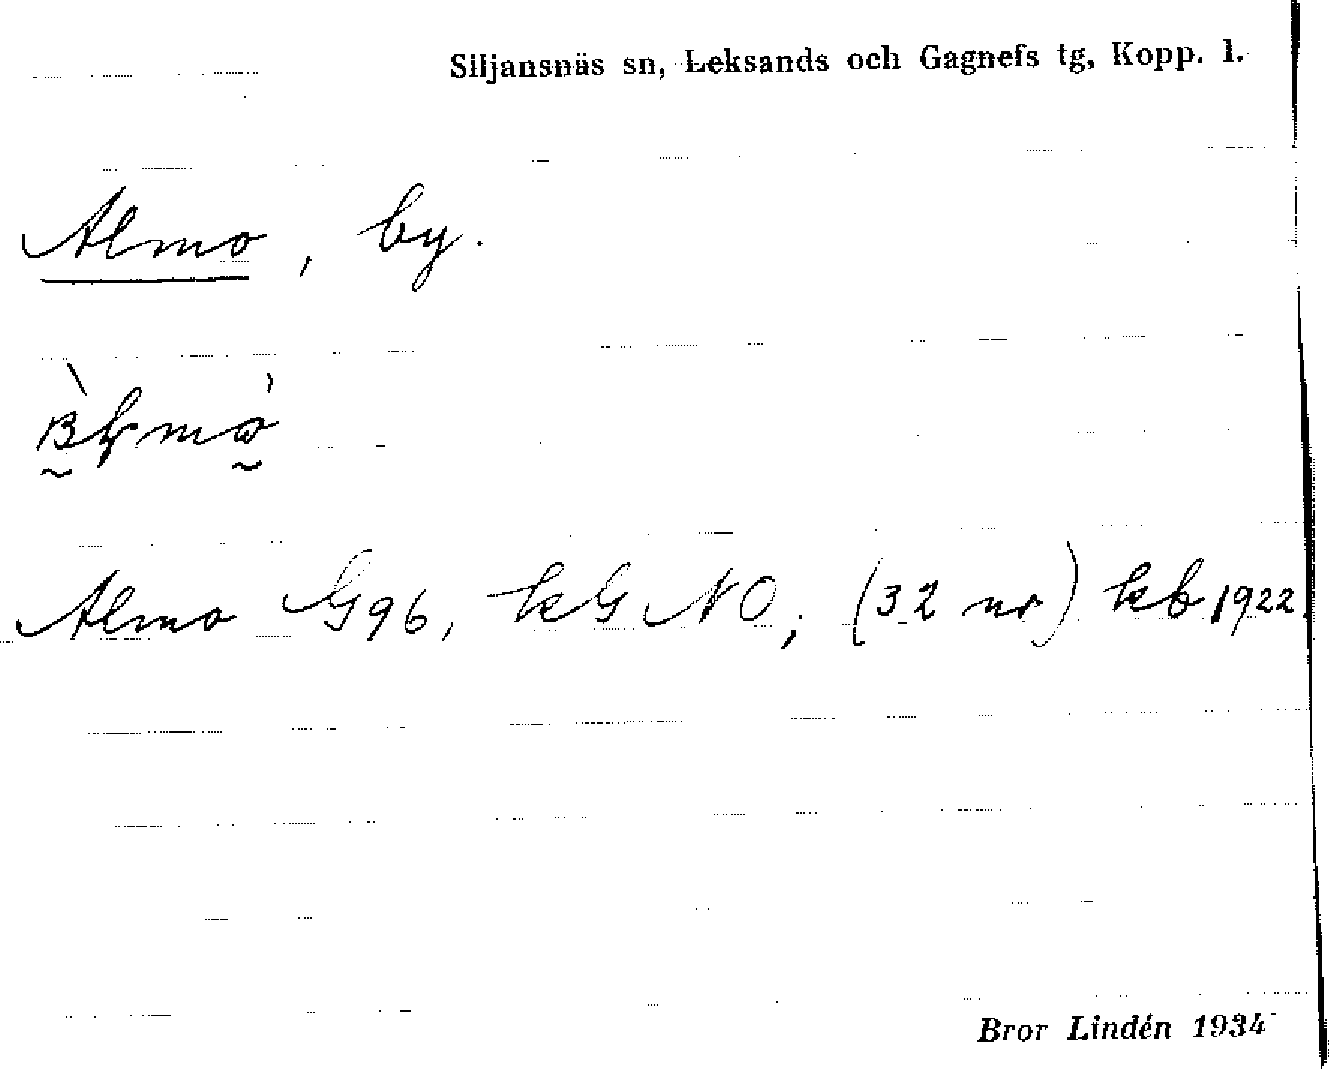 Siljansnäs sn, Leksands och Gagnefs tg, Kopp. l.
Almo, by.
Almo G96, kG NO, (32 nr) kb 1922.
Bror Lindén 1934